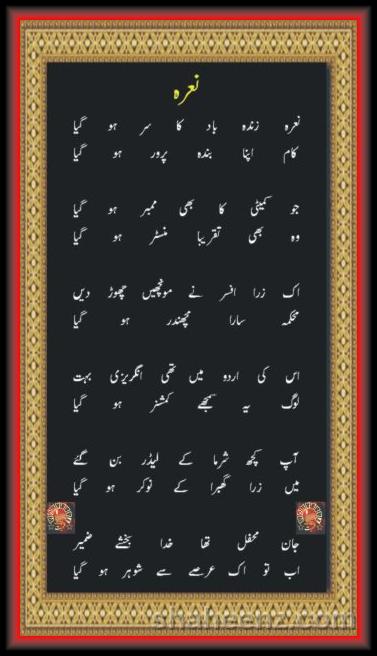 نعرہ
نعرہ زندہ باد کا سر ہو گیا
کام اپنا بندہ پرور ہو گیا
جو کمیٹی کا بھی ممبر ہو گیا
وہ بھی تقریبا منسٹر ہو گیا
اک ذرا افسر نے مونچھیں چھوڑ دیں
محکمہ سارا مچھندر ہو گیا
اس کی اردو میں تھی انگریزی بہت
لوگ یہ سمجھے کمشنر ہو گیا
آپ کچھ شرما کے لیڈر بن گئے
میں ذرا گھبرا کے نوکر ہو گیا
جان محفل تھا خدا بخشے ضمیر
اب تو اک عرصے سے شوہر ہو گیا
shaheenz.com